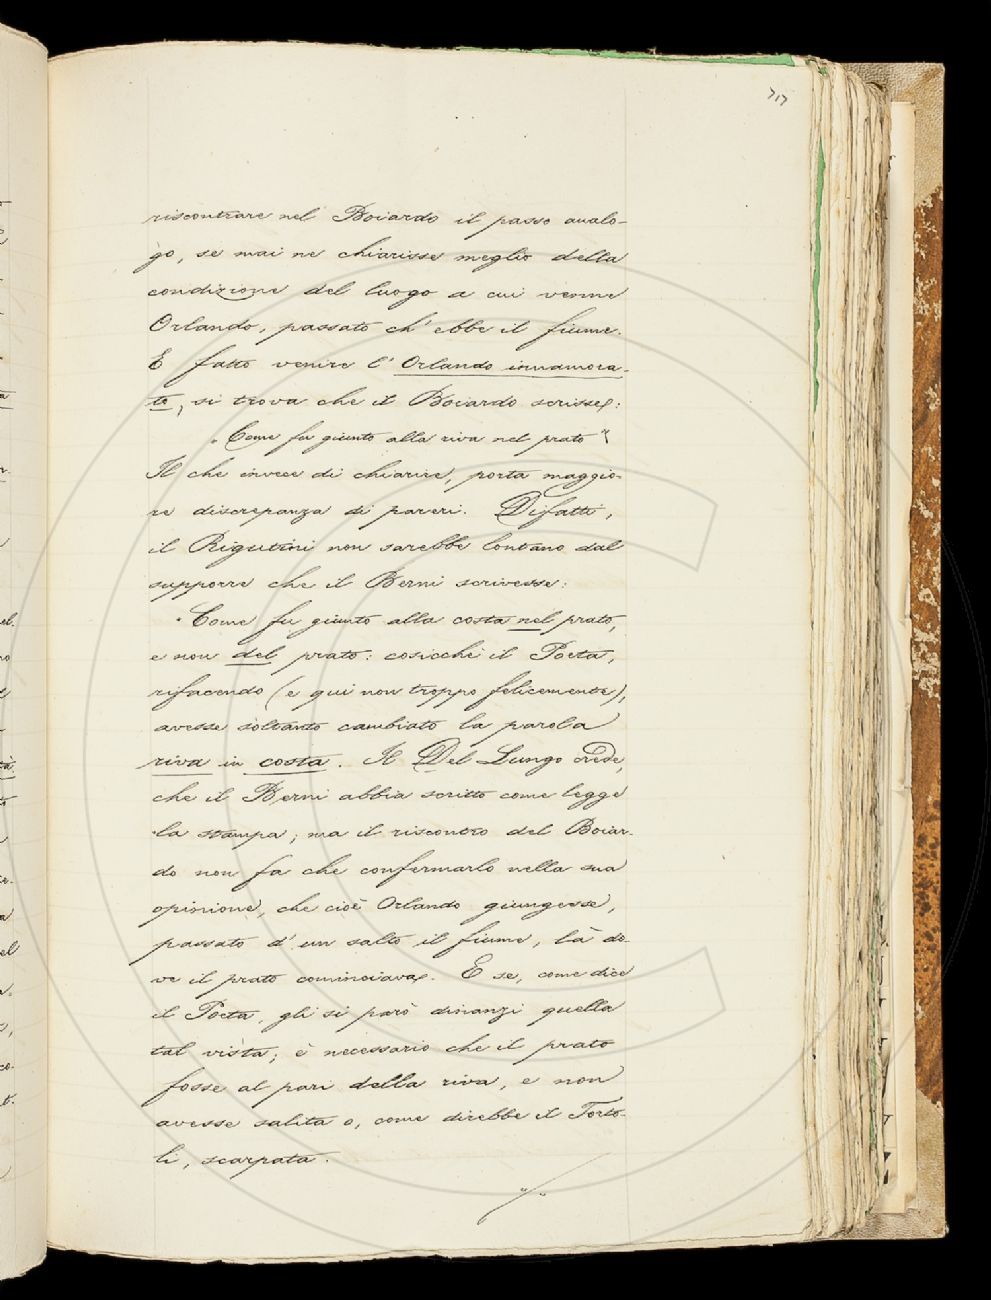 717
riscontrare nel Boiardo il passo analo-
go, se mai ne chiarisse meglio della
condizione del luogo a cui venne
Orlando, passato ch' ebbe il fiume.
E fatto venire l' Orlando innamora-
to, si trova che il Boiardo scrisse:
„ Come fu giunto alla riva nel prato "
Il che invece di chiarire, porta maggio-
re discrepanza di pareri. Difatti,
il Rigutini non sarebbe lontano dal
supporre che il Berni scrivesse:
" Come fu giunto alla costa nel prato,
e non del prato: cosicchè il Poeta,
rifacendo (e qui non troppo felicemente),
avesse soltanto cambiato la parola
riva in costa. Il Del Lungo crede,
che il Berni abbia scritto come legge
la stampa; ma il riscontro del Boiar-
do non fa che confermarlo nella sua
opinione, che cioè Orlando giungesse,
passato d' un salto il fiume, là do-
ve il prato cominciava. E se, come dice
il Poeta, gli si parò dinanzi quella
tal vista; è necessario che il prato
fosse al pari della riva, e non
avesse salita o, come direbbe il Torto-
li, scarpata.